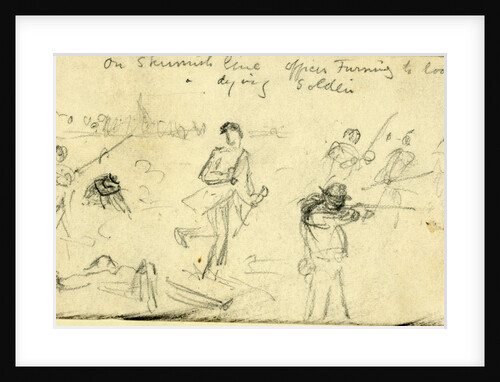 On Skirmish Line officer Turning to loo
a dying Soldier